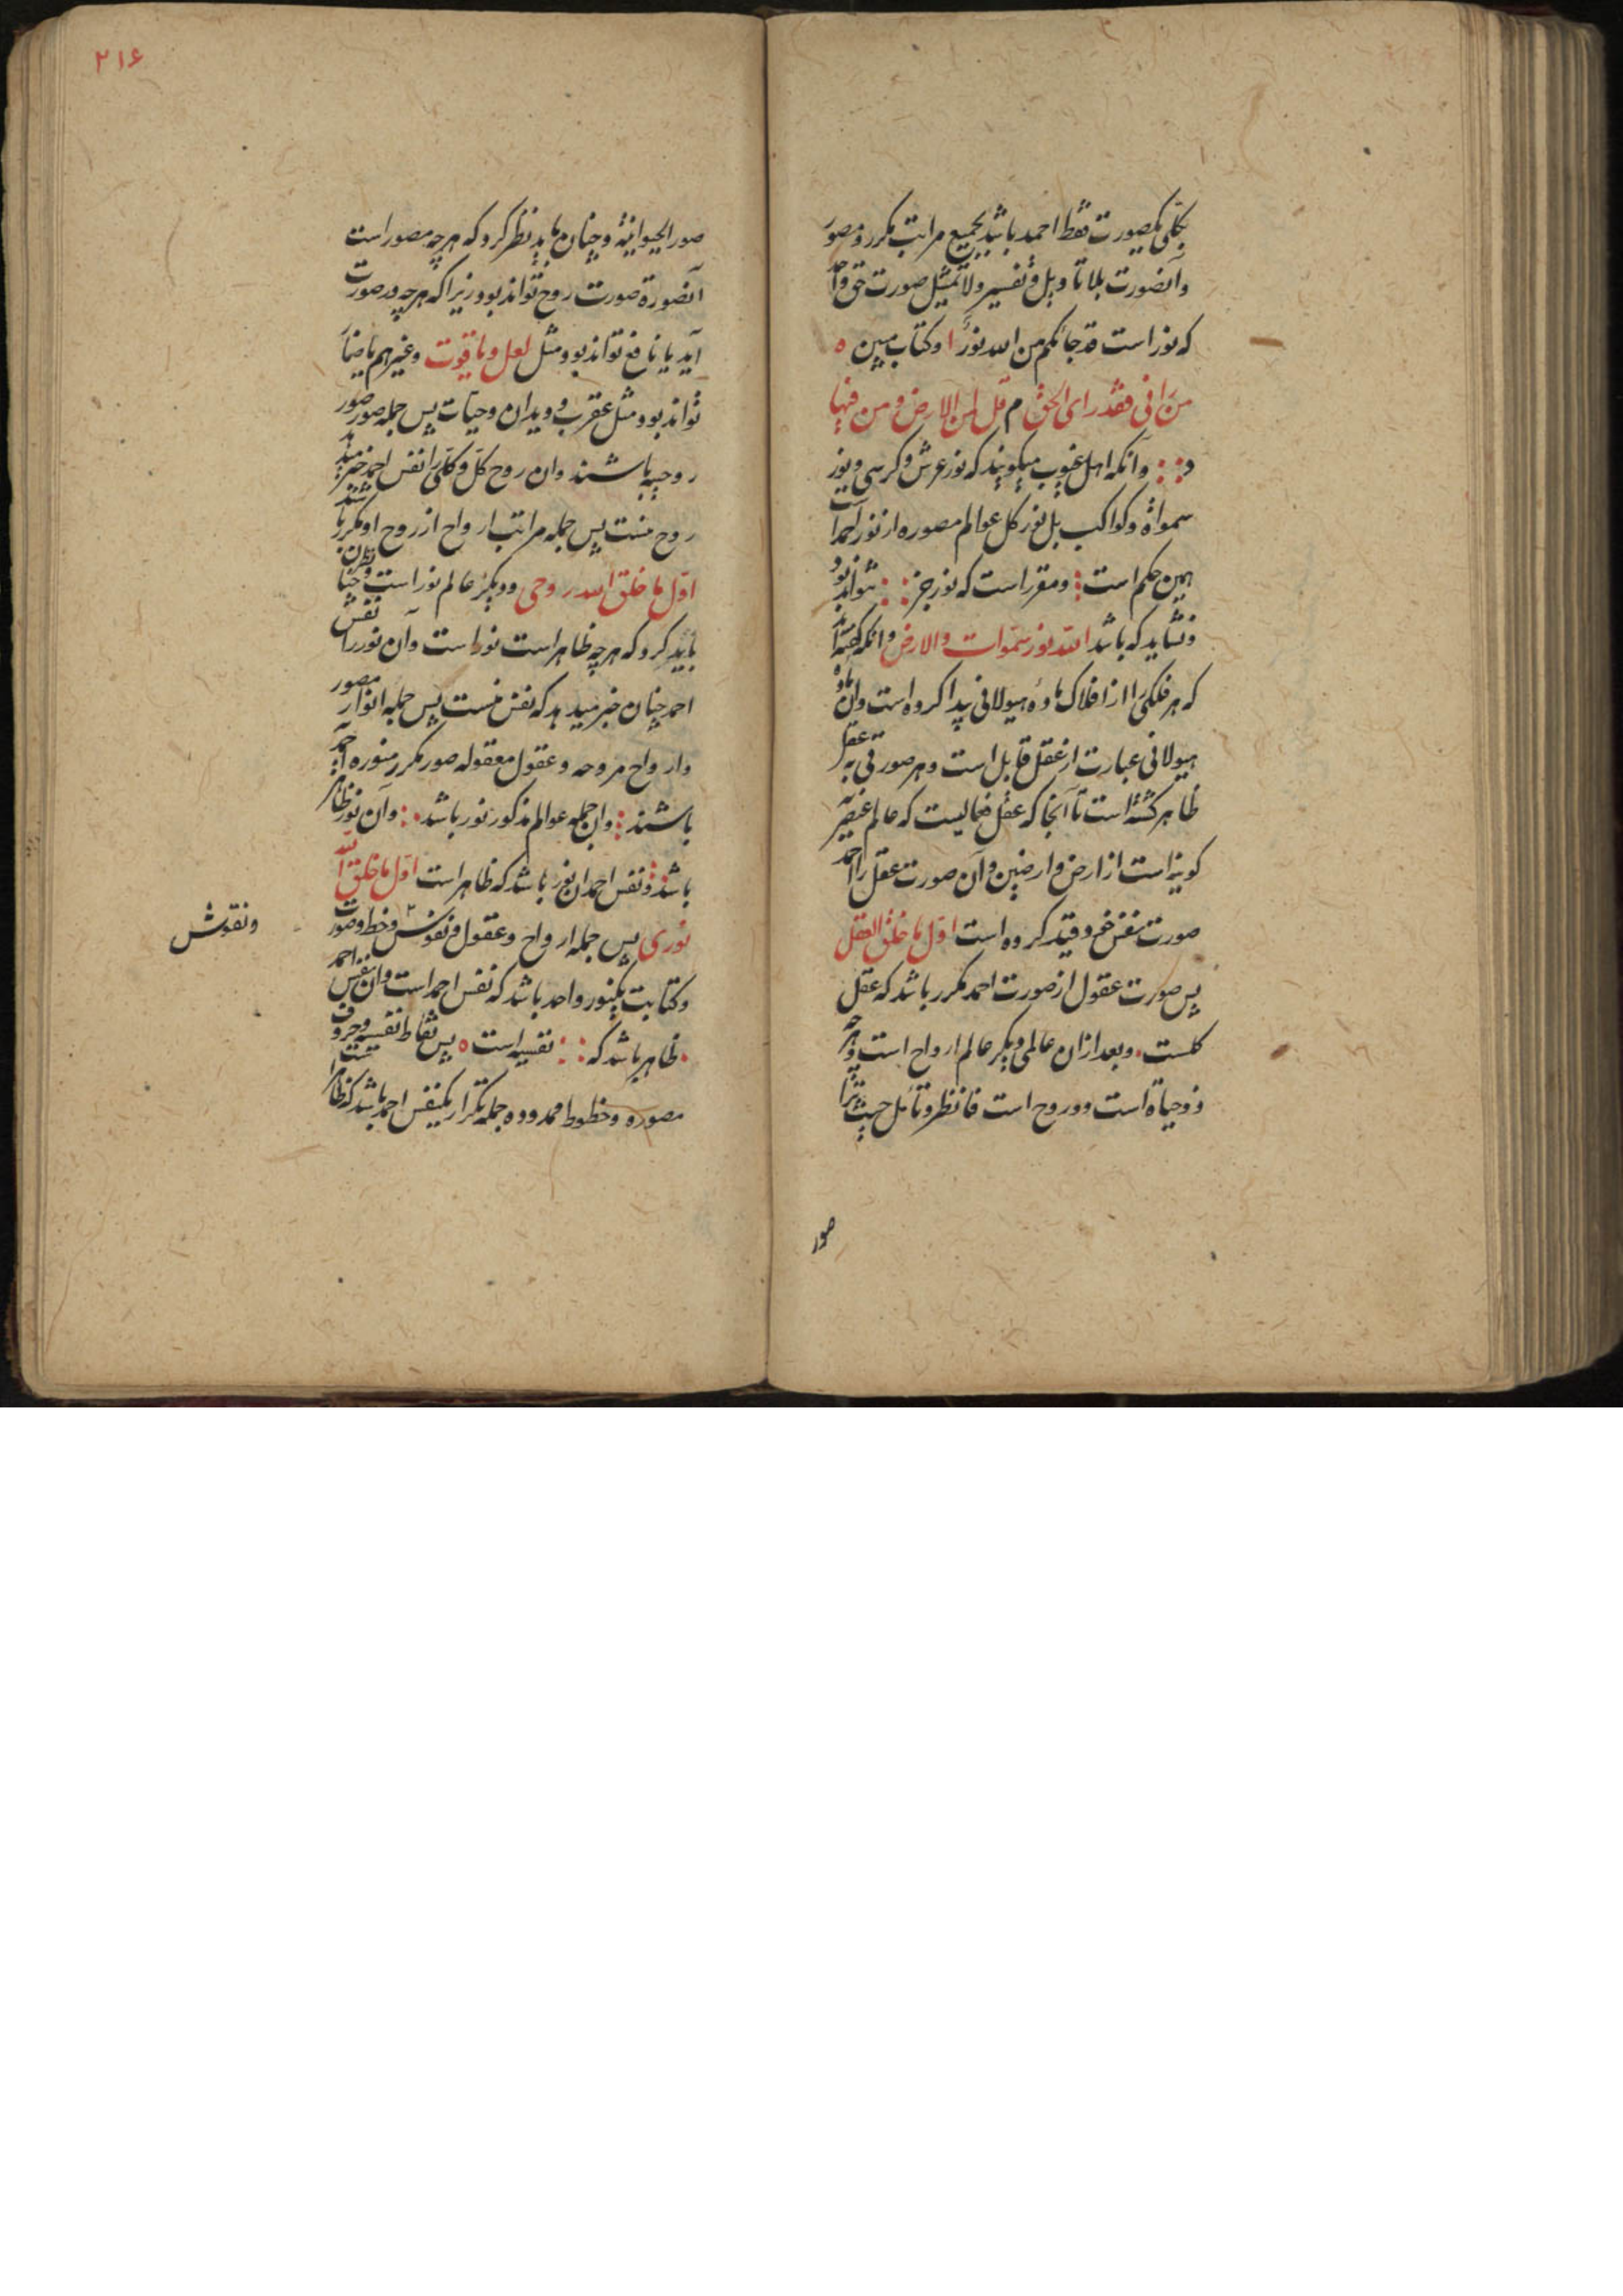 بکلی یکصورت نقطۀ احمد باشد بجمیع مراتب مکرر و مصور
و آنصورت بلا تاویل و تفسیر ولا تمثیل صورت حق
که نور است قد جائکم من الله نورا و کتاب مبین
من رانی فقد رای الحق م قل لمن الارض و من فیها
و آنکه اهل غیوب میکویند که نور عرش و کرسی و نور
سمواة و کواکب بل نور کل عوالم مصوره از نور احمد است
همین حکم است و مقرر است که نور جز نتواند بود
و نشاید که باشد الله نور سموات والارض و آنکه کفته‌اند
که هر فلکی را از افلاک ماده هیولانی پیدا کرده است و آن ماده
هیولانی عبارت از عقل قابل است و هر صورتی به عقل
ظاهر کشته است تا آنجا که عقل فعالیست که عالم عنصریه
کونیه است از ارض و ارضین و آن صورت عقل را احمد
صورت نفس خود قید کرده است اول ما خلق العقل
پس صورت عقول از صورت احمد مکرر باشد که عقل
کلست و بعد از آن عالمی دیکر عالم ارواح است و هر چه
ذو حیاة است ذو روح است فانظر و تامل حیث تری
صور
۲۱۶
صور الحیوانیة و چنان باید نظر کرد که هر چه مصور است
آنصورة صورت روح تواند بود زیرا که هر چه در صورت
آید یا نافع تواند بود مثل لعل و یاقوت و غیرهم یا ضار
تواند بود مثل عقرب و دیدان و حیات پس جمله صور صور
روحیه باشند و آن روح کل و کلی را نفس احمد خبر میدهد
روح منست پس جمله مراتب ارواح از روح او مکرر باشند
اول ما خلق الله روحی و دیکر عالم نور است و چنان نظر
باید کرد که هر چه ظاهر است نور است و آن نور را نفس
احمد چنان خبر میدهد که نفس منست پس جمله انوار مصور
و ارواح مروحه و عقول معقوله صور مکرر منوره احمد
باشند و آن جمله عوالم مذکور نور باشد و آن نور ظاهر
باشد و نفس احمد آن نور باشد که ظاهر است اول ما خلق الله
نوری پس جمله ارواح و عقول و نفوس و خط و صورت
و نقوش
و کتابت یکنور واحد باشد که نفس احمد است و آن نفس احمد
ظاهر باشد که نفسیه است پس نقاط نفسیه و حروف
مصوره و خطوط محدوده جمله تکرار یکنفس احمد باشد که ظاهر است